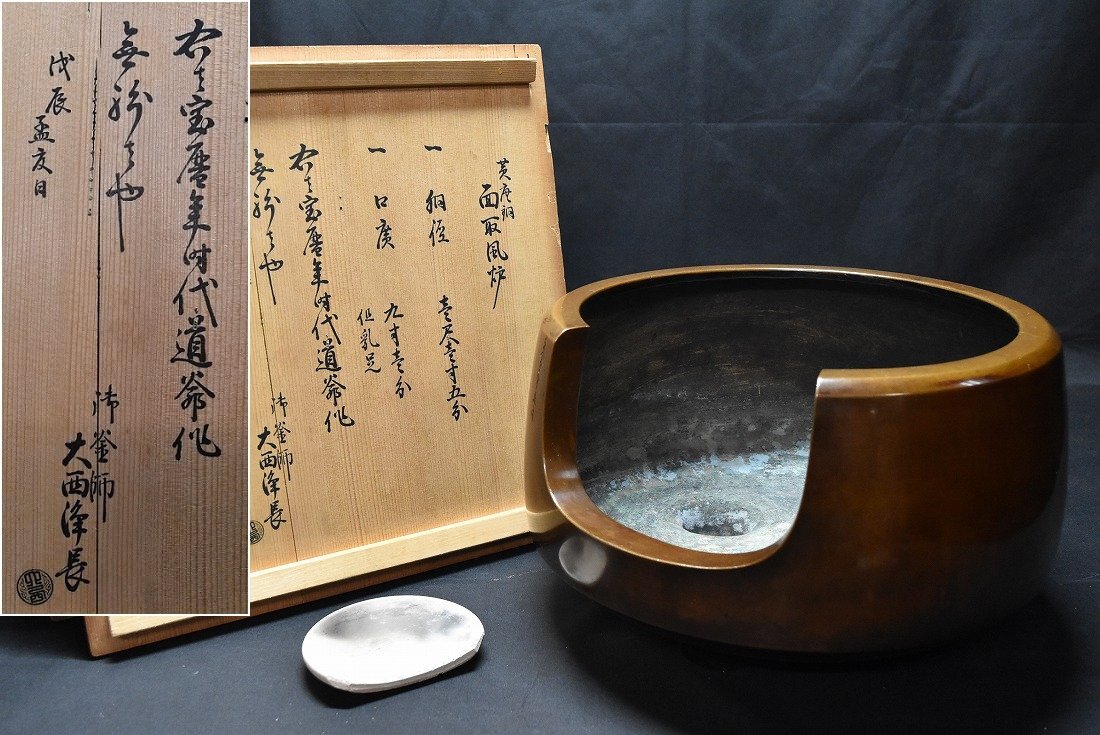 黄唐銅
面取風炉
一 胴径 壱尺壱寸五分
一 口廣 九寸壱分
但乳足
右者宝暦年時代道爺作
無紛者也
釜師
大西浄長
右者宝暦年時代道爺作
無紛者也
戊辰孟夏日
釜師
大西浄長